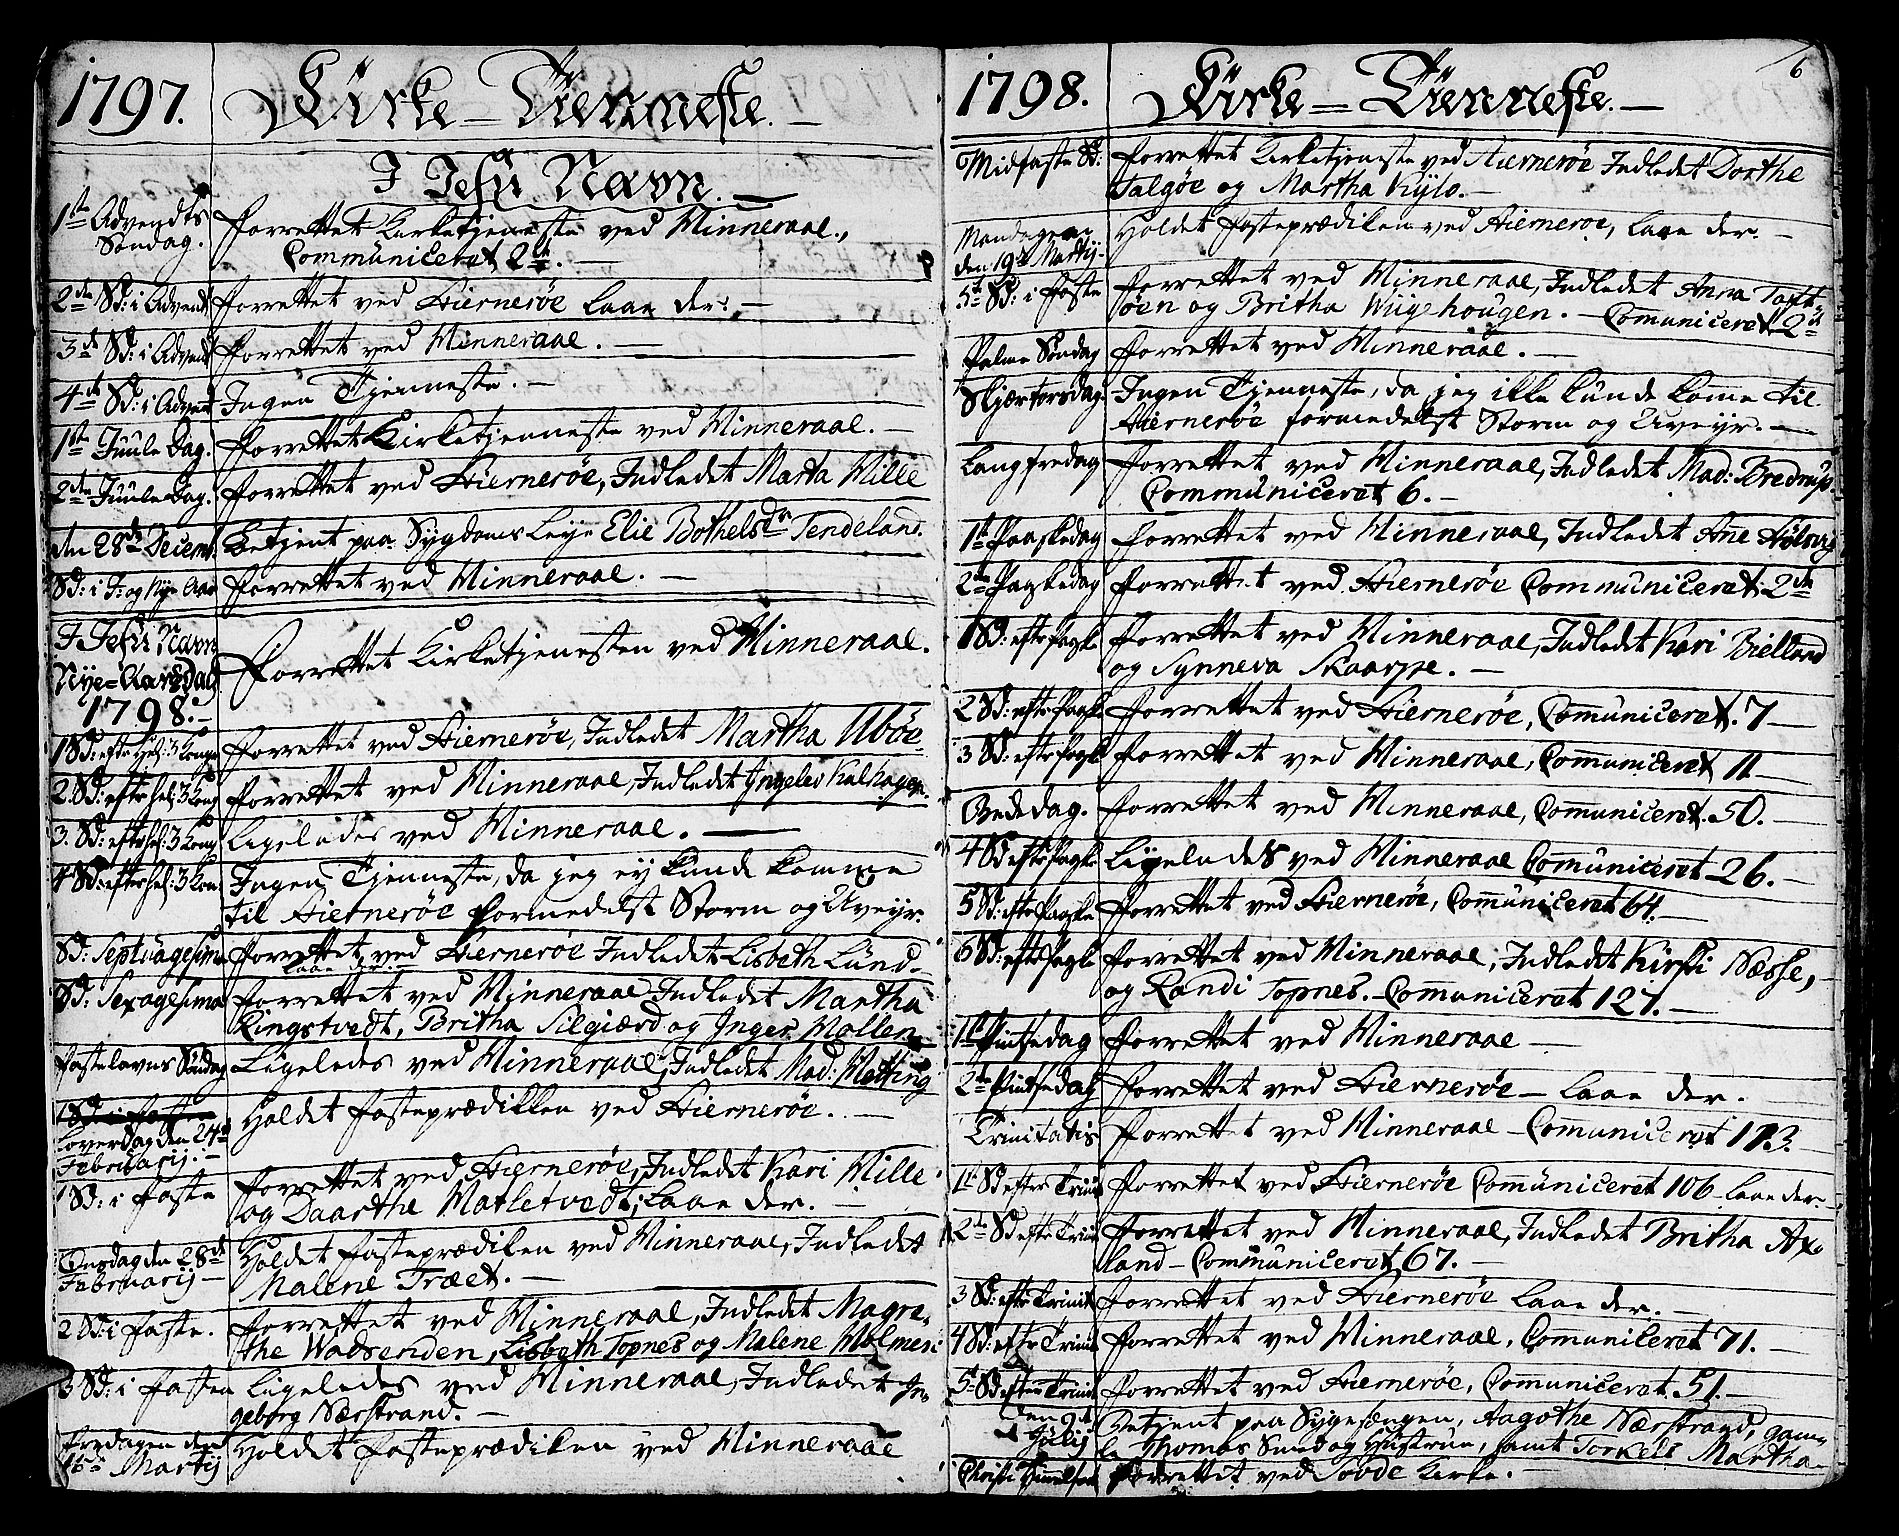 1797. Kirke-Tienneste.
I Jesu Navn.
1ste Advendts Søndag. Forrettet Kirketjeneste ved Hinneraae,
Communiceret 2de.
2den Sd: i Advent Forrettet ved Hiernerøe laae der.
3de Sd: i Advent Forrettet ved Hinneraae.
4de Sd: i Advent Ingen Tjenneste.
1ste Juule Dag. Forrettet Kirketjenneste ved Hinneraae.
2den Juule Dag. Forrettet ved Hiernerøe, Indledet Marta Hille
den 28de Decemb. Betjent paa Sygdoms Leye Elie Bothelsdn Tendeland.
Sd: i J: og Nye Aar Forrettet ved Hinneraae.
I Jesu Navn
Nye-Aars Dag
1798.
Forrettet Kirketjenesten ved Hinneraae.
1 Sd: efter Hel: 3 Kong Forrettet ved Hiernerøe, Indledet Martha Ubøe
2. Sd: efter Hel: 3 Kong Forrettet ved Hinneraae, Indledet Ingelev Kalhagen.
3. Sd: efter Hel: 3 Kong Ligeledes ved Hinneraae.
4 Sd: efter Hel: 3 Kon: Ingen Tjenneste, da jeg ey kunde komme
til Hiernerøe formedelst Storm og Uveyr.
Sd: Septuagesima Forrettet ved Hiernerøe Indledet Lisbeth Lund.
laae der.
Sd: Sexagesima Forrettet ved Hinneraae Indledet Martha
Ringstvedt, Britha Silgiærd og Inger Mollen
Fastelavns Søndag Ligeledes ved Hinneraae, Indledet Mad: Metting
1 Sd: i Faste
Løverdag den 24de
Februarij.
Holdet Fasteprædikken ved Hiernerøe.
1 Sd: i Faste Forrettet ved Hiernerøe, Indledet Kari Hille
og Daarthe Matletvedt, Laae der.
Onsdag den 28de
Februarij
Holdet Fasteprædiken ved Hinneraae, Indledet
Malene Træet.
2 Sd: i Faste. Forrettet ved Hinneraae, Indledet Magre-
the Wadsenden, Lisbeth Topnes og Malene Holmen
3 Sd: i Fasten Ligeledes ved Hinneraae, Indledet In-
geborg Nærstrand.
Fredagen den
16de Martij
Holdet Fasteprædiken ved Hinneraae
1798. Kirke-Tienneste. 6
Midfaste Sd: Forrettet Kirketjeneste ved Hiernerøe Indledet Dorthe
Talgøe og Martha Kylo.
Mandagen
den 19de Martij
Holdet Fasteprædiken ved Hiernerøe, laae der.
5te Sd: i Faste Forrettet ved Hinneraae, Indledet Anna Toft
øen og Britha Wiigehougen. Comuniceret 2de
Palme Søndag Forrettet ved Hinneraae.
Skjærtorsdag Ingen Tjenneste, da jeg ikke kunde kome til
Hiernerøe formedelst Storm og Uveyr.
Langfredag Forrettet ved Hinneraae, Indledet Mad: Bredrup
Communiceret 6.
1ste Paaskedag Forrettet ved Hinneraae, Indledet Ane
2den Paaskedag Forrettet ved Hiernerøe Communiceret 2de
1 Sd: efter Paaske Forrettet ved Hinneraae, Indledet Kari Bielland
og Synneva Skaarpe.
2 Sd: efter Paaske Forrettet ved Hiernerøe, Comuniceret. 7
3 Sd: efter Paaske Forrettet ved Hinneraae, Comuniceret 11
Bededag. Forrettet ved Hinneraae, Comuniceret. 50.
4 Sd efter Paaske Ligeledes ved Hinneraae Comuniceret 26.
5 Sd: efter Paaske Forrettet ved Hiernerøe, Comuniceret 64.
6 Sd: efter Paaske Forrettet ved Hinneraae, Indledet Kirsti Næsse,
og Randi Topnes. Comuniceret 127.
1ste Pintsedag Forrettet ved Hinneraae
2den Pintsedag Forrettet ved Hiernerøe laae der.
Trinitatis Forrettet ved Hinneraae Comuniceret 173.
1te Sd efter Trinit Forrettet ved Hiernerøe Comuniceret 106 laae der.
2de Sd efter Trinit Forrettet ved Hinneraae, Indledet Britha Ax-
land Comuniceret 67.
3 Sd: efter Trinit Forrettet ved Hiernerøe laae der.
4 Sd: efter Trinit Forrettet ved Hinneraae, Comuniceret 71.
5 Sd: efter Trinit Forrettet ved Hiernerøe, Comuniceret. 51.
den 9de
Julij
Betjent paa Sygesængen, Aagothe Nærstrand, gam-
le Thomas Sund og Hustrue, samt Torkels Martha
Forrettet ved Sovde Kirke.